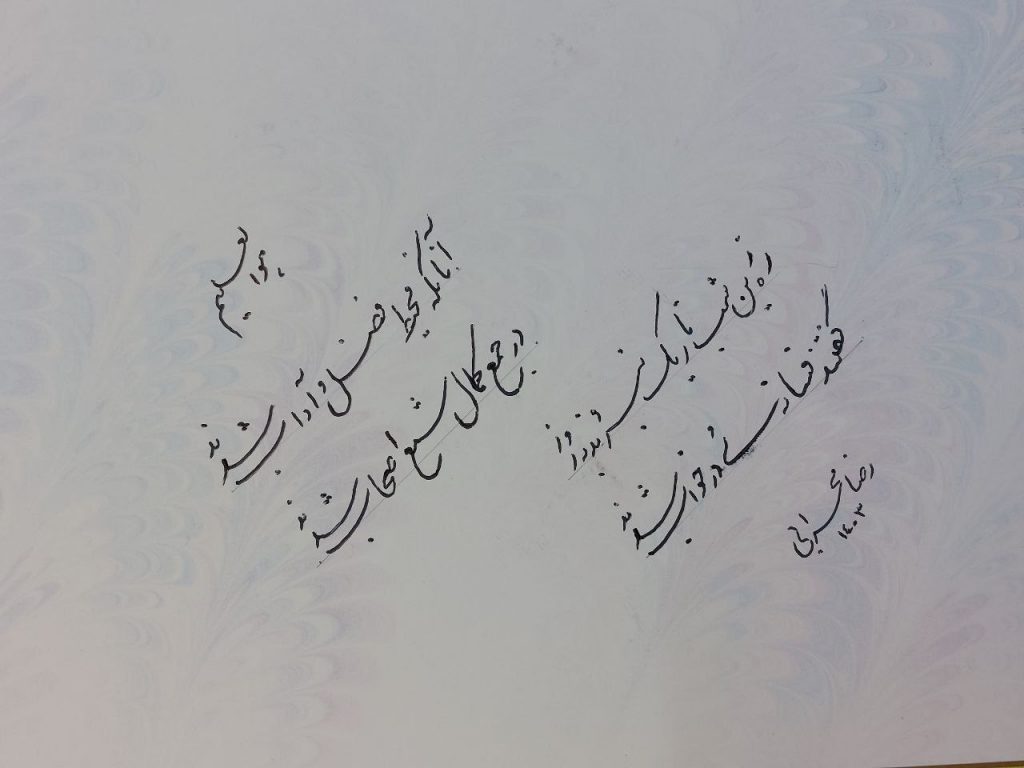 هوالعلیم
آنانکه محیط فضل و آداب شدند
در جمع کمال شمع اصحاب شدند
ره زین شب تاریک نبردند بروز
گفتند فسانه‌ای و در خواب شدند
رضا محرابی
۱۴۰۳